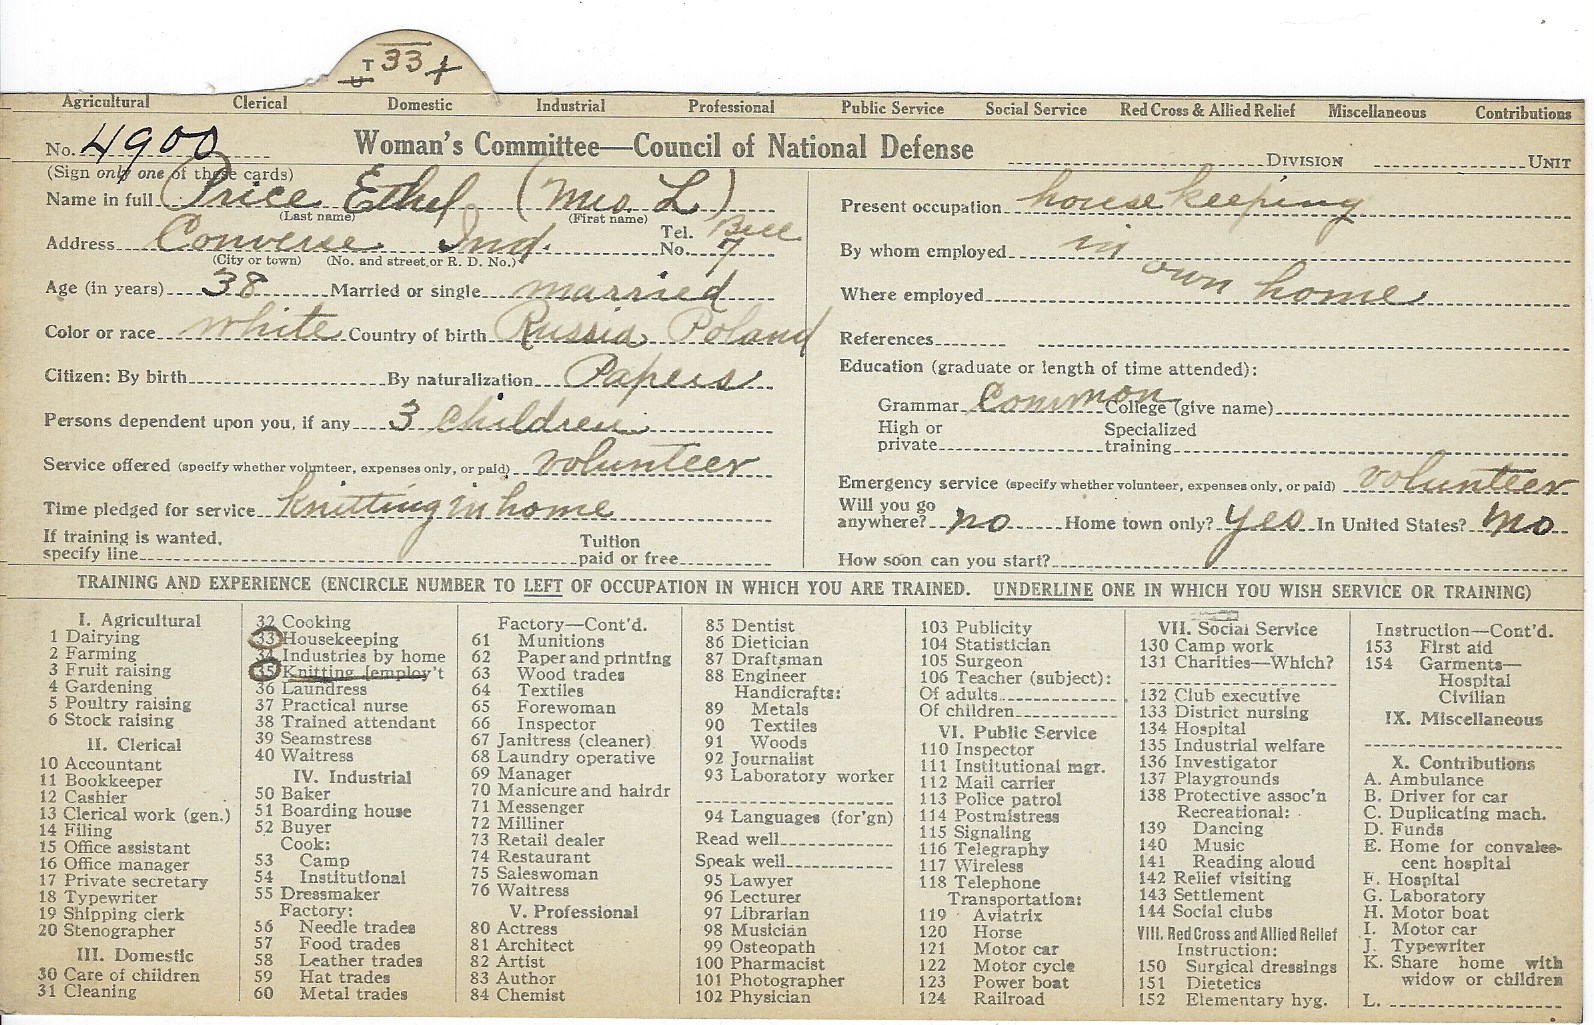 T 33
Agricultural Clerical Domestic Industrial Professional Public Service Social Service Red Cross & Allied Relief Miscellaneous Contributions
No. 4900 Woman's Committee—Council of National Defense DIVISION UNIT
(Sign only one of these cards)
Name in full Price Ethel (Mrs L)
(Last name) (First name)
Address Converse Ind. Tel. No. Bell 7
(City or town) (No. and street, or R. D. No.)
Age (in years) 38 Married or single married
Color or race white Country of birth Russia Poland
Citizen: By birth By naturalization Papers
Persons dependent upon you, if any 3 children
Service offered (specify whether volunteer, expenses only, or paid) volunteer
Time pledged for service knitting in home
If training is wanted, specify line Tuition paid or free
Present occupation housekeeping
By whom employed in
Where employed own home
References
Education (graduate or length of time attended):
Grammar Common College (give name)
High or private Specialized training
Emergency service (specify whether volunteer, expenses only, or paid) volunteer
Will you go anywhere? no Home town only? yes In United States? no
How soon can you start?
TRAINING AND EXPERIENCE (ENCIRCLE NUMBER TO LEFT OF OCCUPATION IN WHICH YOU ARE TRAINED. UNDERLINE ONE IN WHICH YOU WISH SERVICE OR TRAINING)
I. Agricultural
1 Dairying
2 Farming
3 Fruit raising
4 Gardening
5 Poultry raising
6 Stock raising
II. Clerical
10 Accountant
11 Bookkeeper
12 Cashier
13 Clerical work (gen.)
14 Filing
15 Office assistant
16 Office manager
17 Private secretary
18 Typewriter
19 Shipping clerk
20 Stenographer
III. Domestic
30 Care of children
31 Cleaning
32 Cooking
33 Housekeeping
34 Industries by home
35 Knitting [employ't
36 Laundress
37 Practical nurse
38 Trained attendant
39 Seamstress
40 Waitress
IV. Industrial
50 Baker
51 Boarding house
52 Buyer
Cook:
53 Camp
54 Institutional
55 Dressmaker
Factory:
56 Needle trades
57 Food trades
58 Leather trades
59 Hat trades
60 Metal trades
Factory—Cont'd.
61 Munitions
62 Paper and printing
63 Wood trades
64 Textiles
65 Forewoman
66 Inspector
67 Janitress (cleaner)
68 Laundry operative
69 Manager
70 Manicure and hairdr
71 Messenger
72 Milliner
73 Retail dealer
74 Restaurant
75 Saleswoman
76 Waitress
V. Professional
80 Actress
81 Architect
82 Artist
83 Author
84 Chemist
85 Dentist
86 Dietician
87 Draftsman
88 Engineer
Handicrafts:
89 Metals
90 Textiles
91 Woods
92 Journalist
93 Laboratory worker
94 Languages (for'gn)
Read well
Speak well
95 Lawyer
96 Lecturer
97 Librarian
98 Musician
99 Osteopath
100 Pharmacist
101 Photographer
102 Physician
103 Publicity
104 Statistician
105 Surgeon
106 Teacher (subject):
Of adults
Of children
VI. Public Service
110 Inspector
111 Institutional mgr.
112 Mail carrier
113 Police patrol
114 Postmistress
115 Signaling
116 Telegraphy
117 Wireless
118 Telephone
Transportation:
119 Aviatrix
120 Horse
121 Motor car
122 Motor cycle
123 Power boat
124 Railroad
VII. Social Service
130 Camp work
131 Charities—Which?
132 Club executive
133 District nursing
134 Hospital
135 Industrial welfare
136 Investigator
137 Playgrounds
138 Protective assoc'n
Recreational:
139 Dancing
140 Music
141 Reading aloud
142 Relief visiting
143 Settlement
144 Social clubs
VIII. Red Cross and Allied Relief
Instruction:
150 Surgical dressings
151 Dietetics
152 Elementary hyg.
Instruction—Cont'd.
153 First aid
154 Garments—
Hospital
Civilian
IX. Miscellaneous
X. Contributions
A. Ambulance
B. Driver for car
C. Duplicating mach.
D. Funds
E. Home for convales-
cent hospital
F. Hospital
G. Laboratory
H. Motor boat
I. Motor car
J. Typewriter
K. Share home with
widow or children
L.